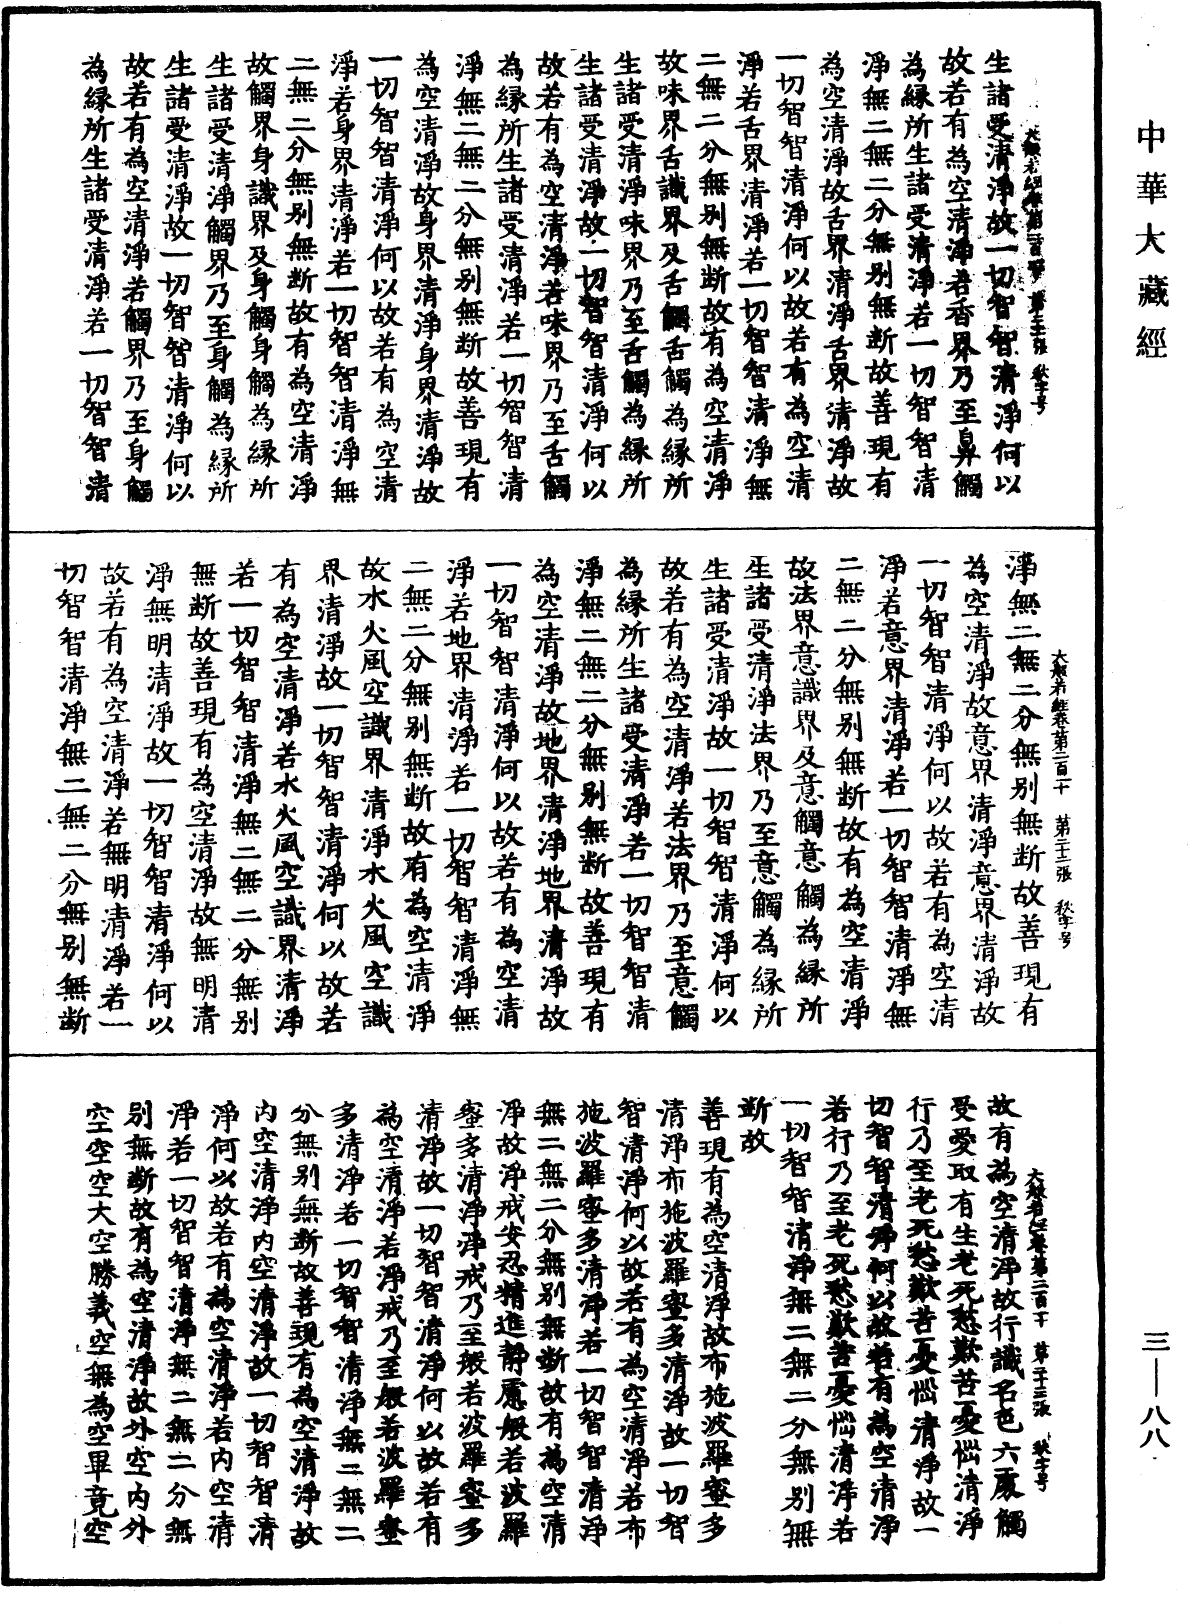 中華大藏經
大般若經卷第二百一十 第二十一張 秋字号
生諸受清淨故一切智智清淨何以
故若有為空清淨若香界乃至鼻觸
為緣所生諸受清淨若一切智智清
淨無二無二分無别無断故善現有
為空清淨故舌界清淨舌界清淨故
一切智智清淨何以故若有為空清
淨若舌界清淨若一切智智清淨無
二無二分無别無断故有為空清淨
故味界舌識界及舌觸舌觸為緣所
生諸受清淨味界乃至舌觸為緣所
生諸受清淨故一切智智清淨何以
故若有為空清淨若味界乃至舌觸
為緣所生諸受清淨若一切智智清
淨無二無二分無别無断故善現有
為空清淨故身界清淨身界清淨故
一切智智清淨何以故若有為空清
淨若身界清淨若一切智智清淨無
二無二分無别無断故有為空清淨
故觸界身識界及身觸身觸為緣所
生諸受清淨觸界乃至身觸為緣所
生諸受清淨故一切智智清淨何以
故若有為空清淨若觸界乃至身觸
為緣所生諸受清淨若一切智智清
大般若經卷第二百一十 第二十二張 秋字号
淨無二無二分無别無断故善現有
為空清淨故意界清淨意界清淨故
一切智智清淨何以故若有為空清
淨若意界清淨若一切智智清淨無
二無二分無别無断故有為空清淨
故法界意識界及意觸意觸為緣所
生諸受清淨法界乃至意觸為緣所
生諸受清淨故一切智智清淨何以
故若有為空清淨若法界乃至意觸
為緣所生諸受清淨若一切智智清
淨無二無二分無别無断故善現有
為空清淨故地界清淨地界清淨故
一切智智清淨何以故若有為空清
淨若地界清淨若一切智智清淨無
二無二分無别無断故有為空清淨
故水火風空識界清淨水火風空識
界清淨故一切智智清淨何以故若
有為空清淨若水火風空識界清淨
若一切智智清淨無二無二分無别
無断故善現有為空清淨故無明清
淨無明清淨故一切智智清淨何以
故若有為空清淨若無明清淨若一
切智智清淨無二無二分無别無断
大般若經卷第二百一十 第二十三張 秋字号
故有為空清淨故行識名色六處觸
受愛取有生老死愁歎苦憂惱清淨
行乃至老死愁歎苦憂惱清淨故一
切智智清淨何以故若有為空清淨
若行乃至老死愁歎苦憂惱清淨若
一切智智清淨無二無二分無别無
断故
善現有為空清淨故布施波羅蜜多
清淨布施波羅蜜多清淨故一切智
智清淨何以故若有為空清淨若布
施波羅蜜多清淨若一切智智清淨
無二無二分無别無断故有為空清
淨故淨戒安忍精進靜慮般若波羅
蜜多清淨淨戒乃至般若波羅蜜多
清淨故一切智智清淨何以故若有
為空清淨若淨戒乃至般若波羅蜜
多清淨若一切智智清淨無二無二
分無别無断故善現有為空清淨故
內空清淨內空清淨故一切智智清
淨何以故若有為空清淨若內空清
淨若一切智智清淨無二無二分無
别無断故有為空清淨故外空內外
空空空大空勝義空無為空畢竟空
三—八八